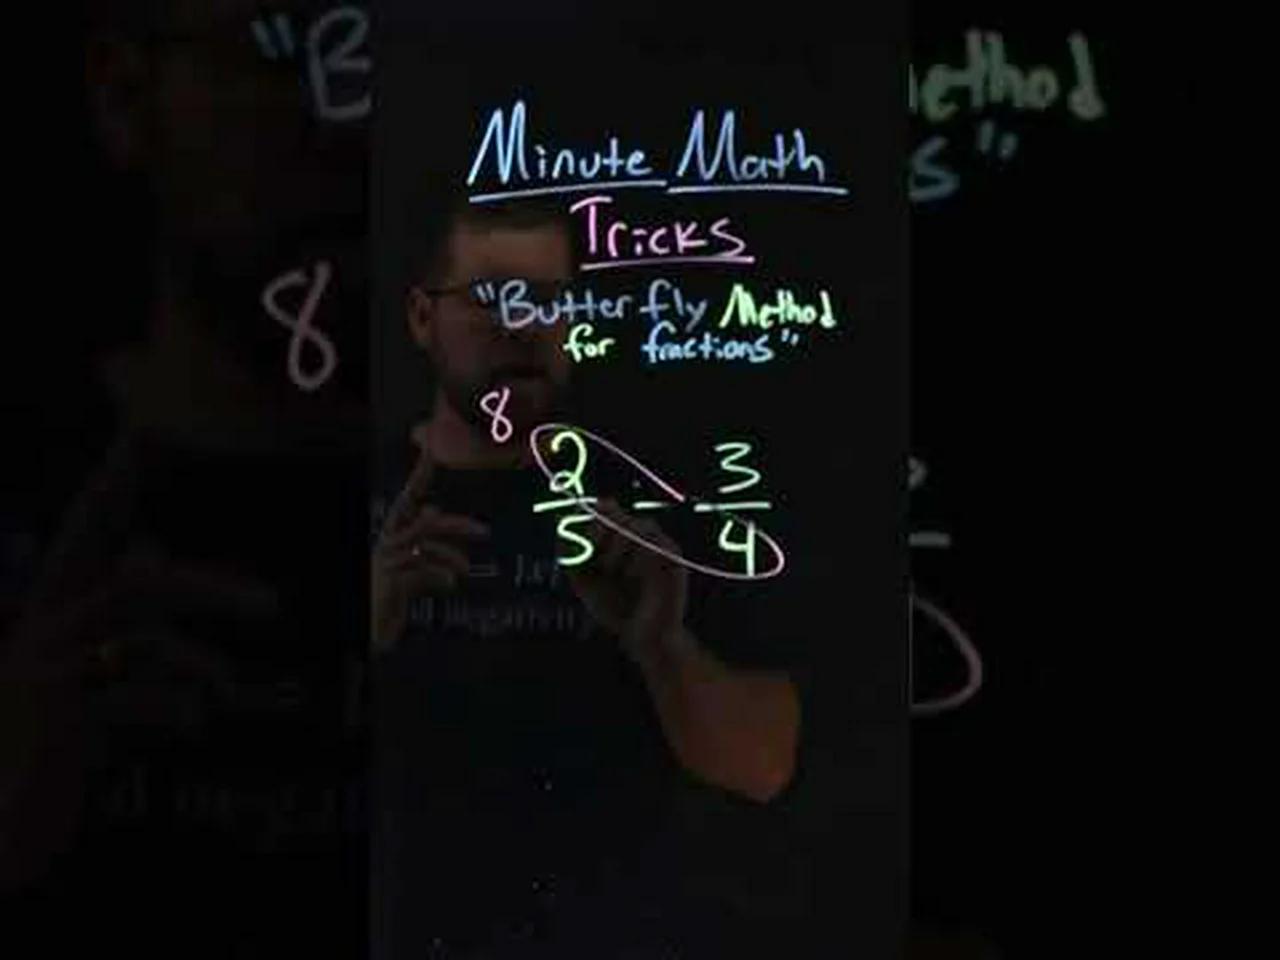 Minute Math
Tricks
"Butterfly Method
for fractions"
8
2 - 3
5 4